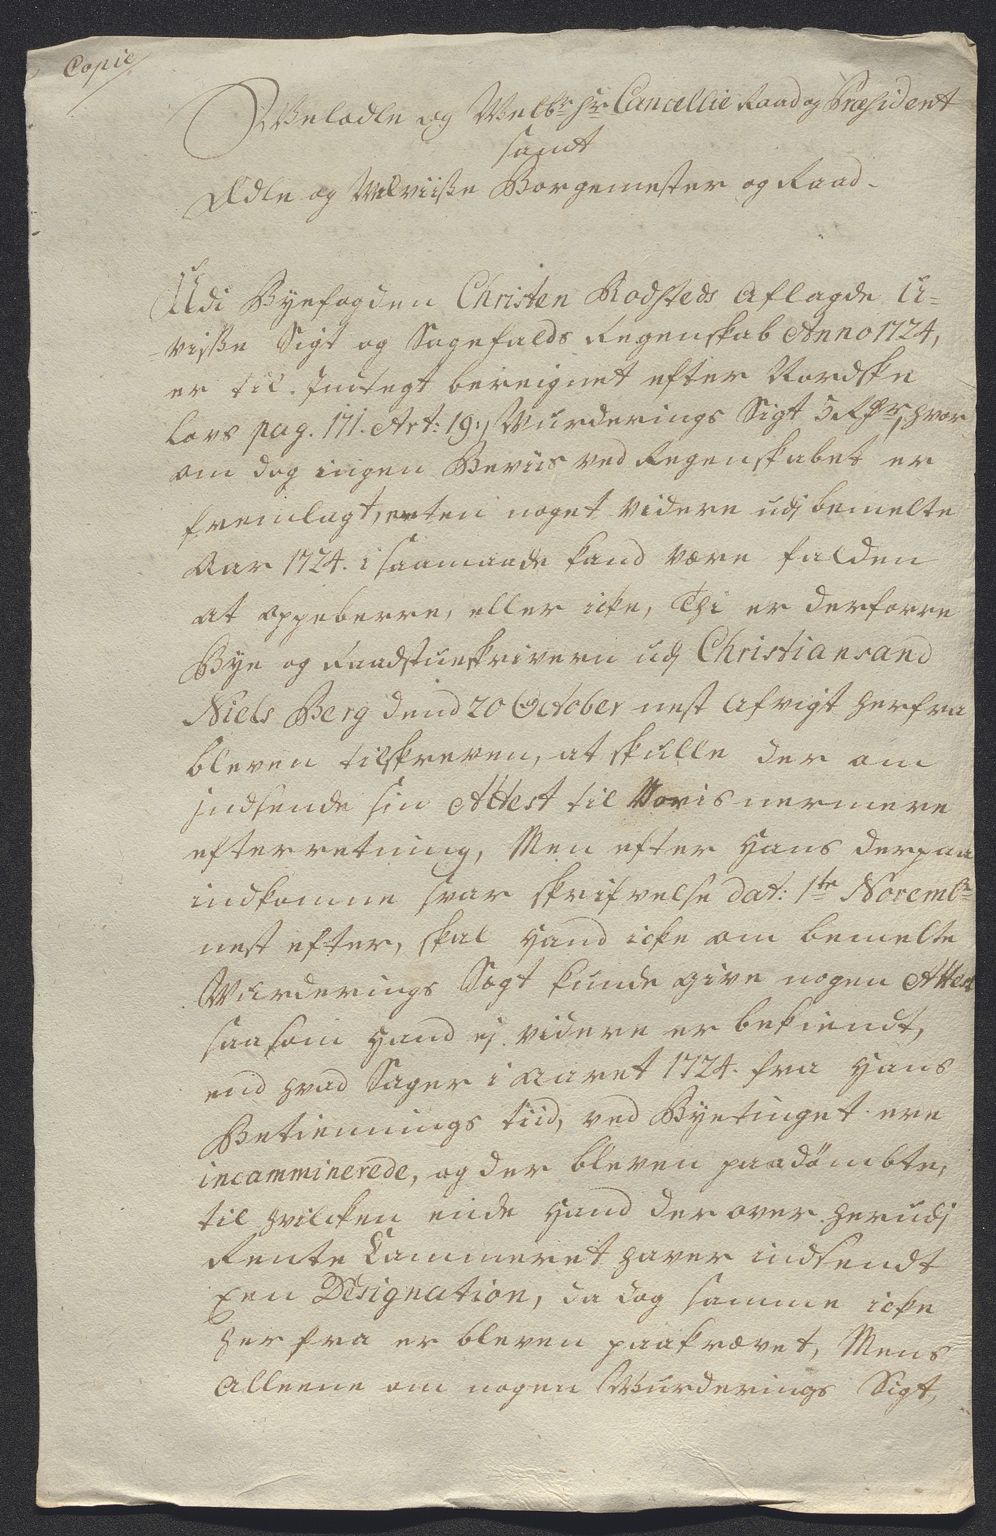 Copie
Velædle og Welb: Hr Cancellie Raad og Præsident
samt
Ædle og Velviiße Borgemester og Raad.
Udi Byefogden Christen Rodsteds Aflagde U-
-visße Sigt og Sagefalds Regenskab Anno 1724,
er til Indtegt bereignet efter Nordske
Lovs pag. 171. Art: 19: Wurderings Sigt 5 Rdr, hvor
om dog ingen Beviis ved Regenskabet er
fremlagt, enten noget videre udj bemelte
Aar 1724. i saamaade kand være falden
at oppeberre, eller icke, Thi er derforre
Bye og Raadstueskriveren udj Christiansand
Niels Berg dend 20 October nest afvigt herfra
bleven tilskreven, at skulle der om
indsende sin Attest til Voris nermere
efterretning, Men efter Hans derpaa
indkomne svar skrifvelse dat: 1te Novemb:
nest efter, skal Hand icke om bemelte
Wurderings Sigt kunde give nogen Attest
saasom Hand ej videre er bekiendt,
end hvad Sager i Aaret 1724. fra Hans
Betiennings tiid, ved Byetinget ere
incamminerede, og der bleven paadömbte,
til hvilcken ende Hand derover herudj
Rente Cammeret haver indsendt
Een Designation, da dog samme icke
her fra er bleven paakrævet, Mens
Alleene om nogen Wurderings Sigt,